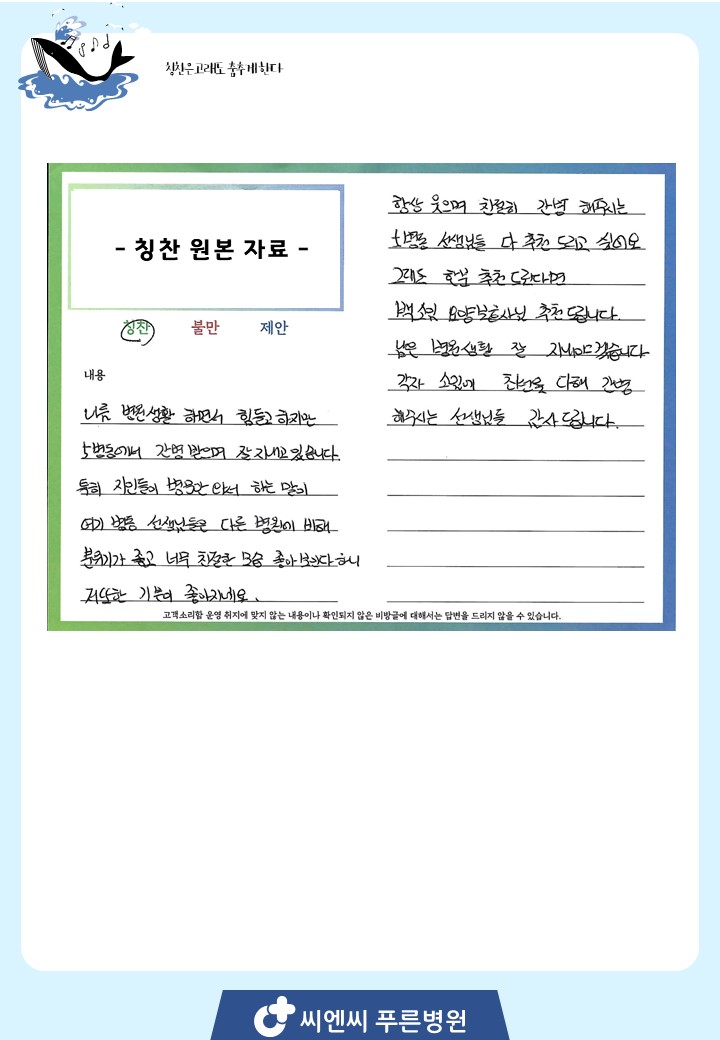 칭찬은 고래도 춤추게 한다
- 칭찬 원본 자료 -
칭찬 불만 제안
내용
나름 병원생활 하면서 힘들고 하지만
5병동에서 간병 받으며 잘 지내고 있습니다.
특히 지인들이 병문안 와서 하는 말이
여기 병동 선생님들은 다른 병원에 비해
분위기가 좋고 너무 친절한 모습 좋아 보인다 하니
저 또한 기분이 좋아지네요.
항상 웃으며 친절히 간병 해주시는
5병동 선생님들 다 추천 드리고 싶어요
그래도 한분 추천 드린다면
백소임 요양보호사님 추천 드립니다.
남은 병원생활 잘 지내야겠습니다
각자 소임에 최선을 다해 간병
해주시는 선생님들 감사 드립니다.
고객소리함 운영 취지에 맞지 않는 내용이나 확인되지 않은 비방글에 대해서는 답변을 드리지 않을 수 있습니다.
씨엔씨 푸른병원